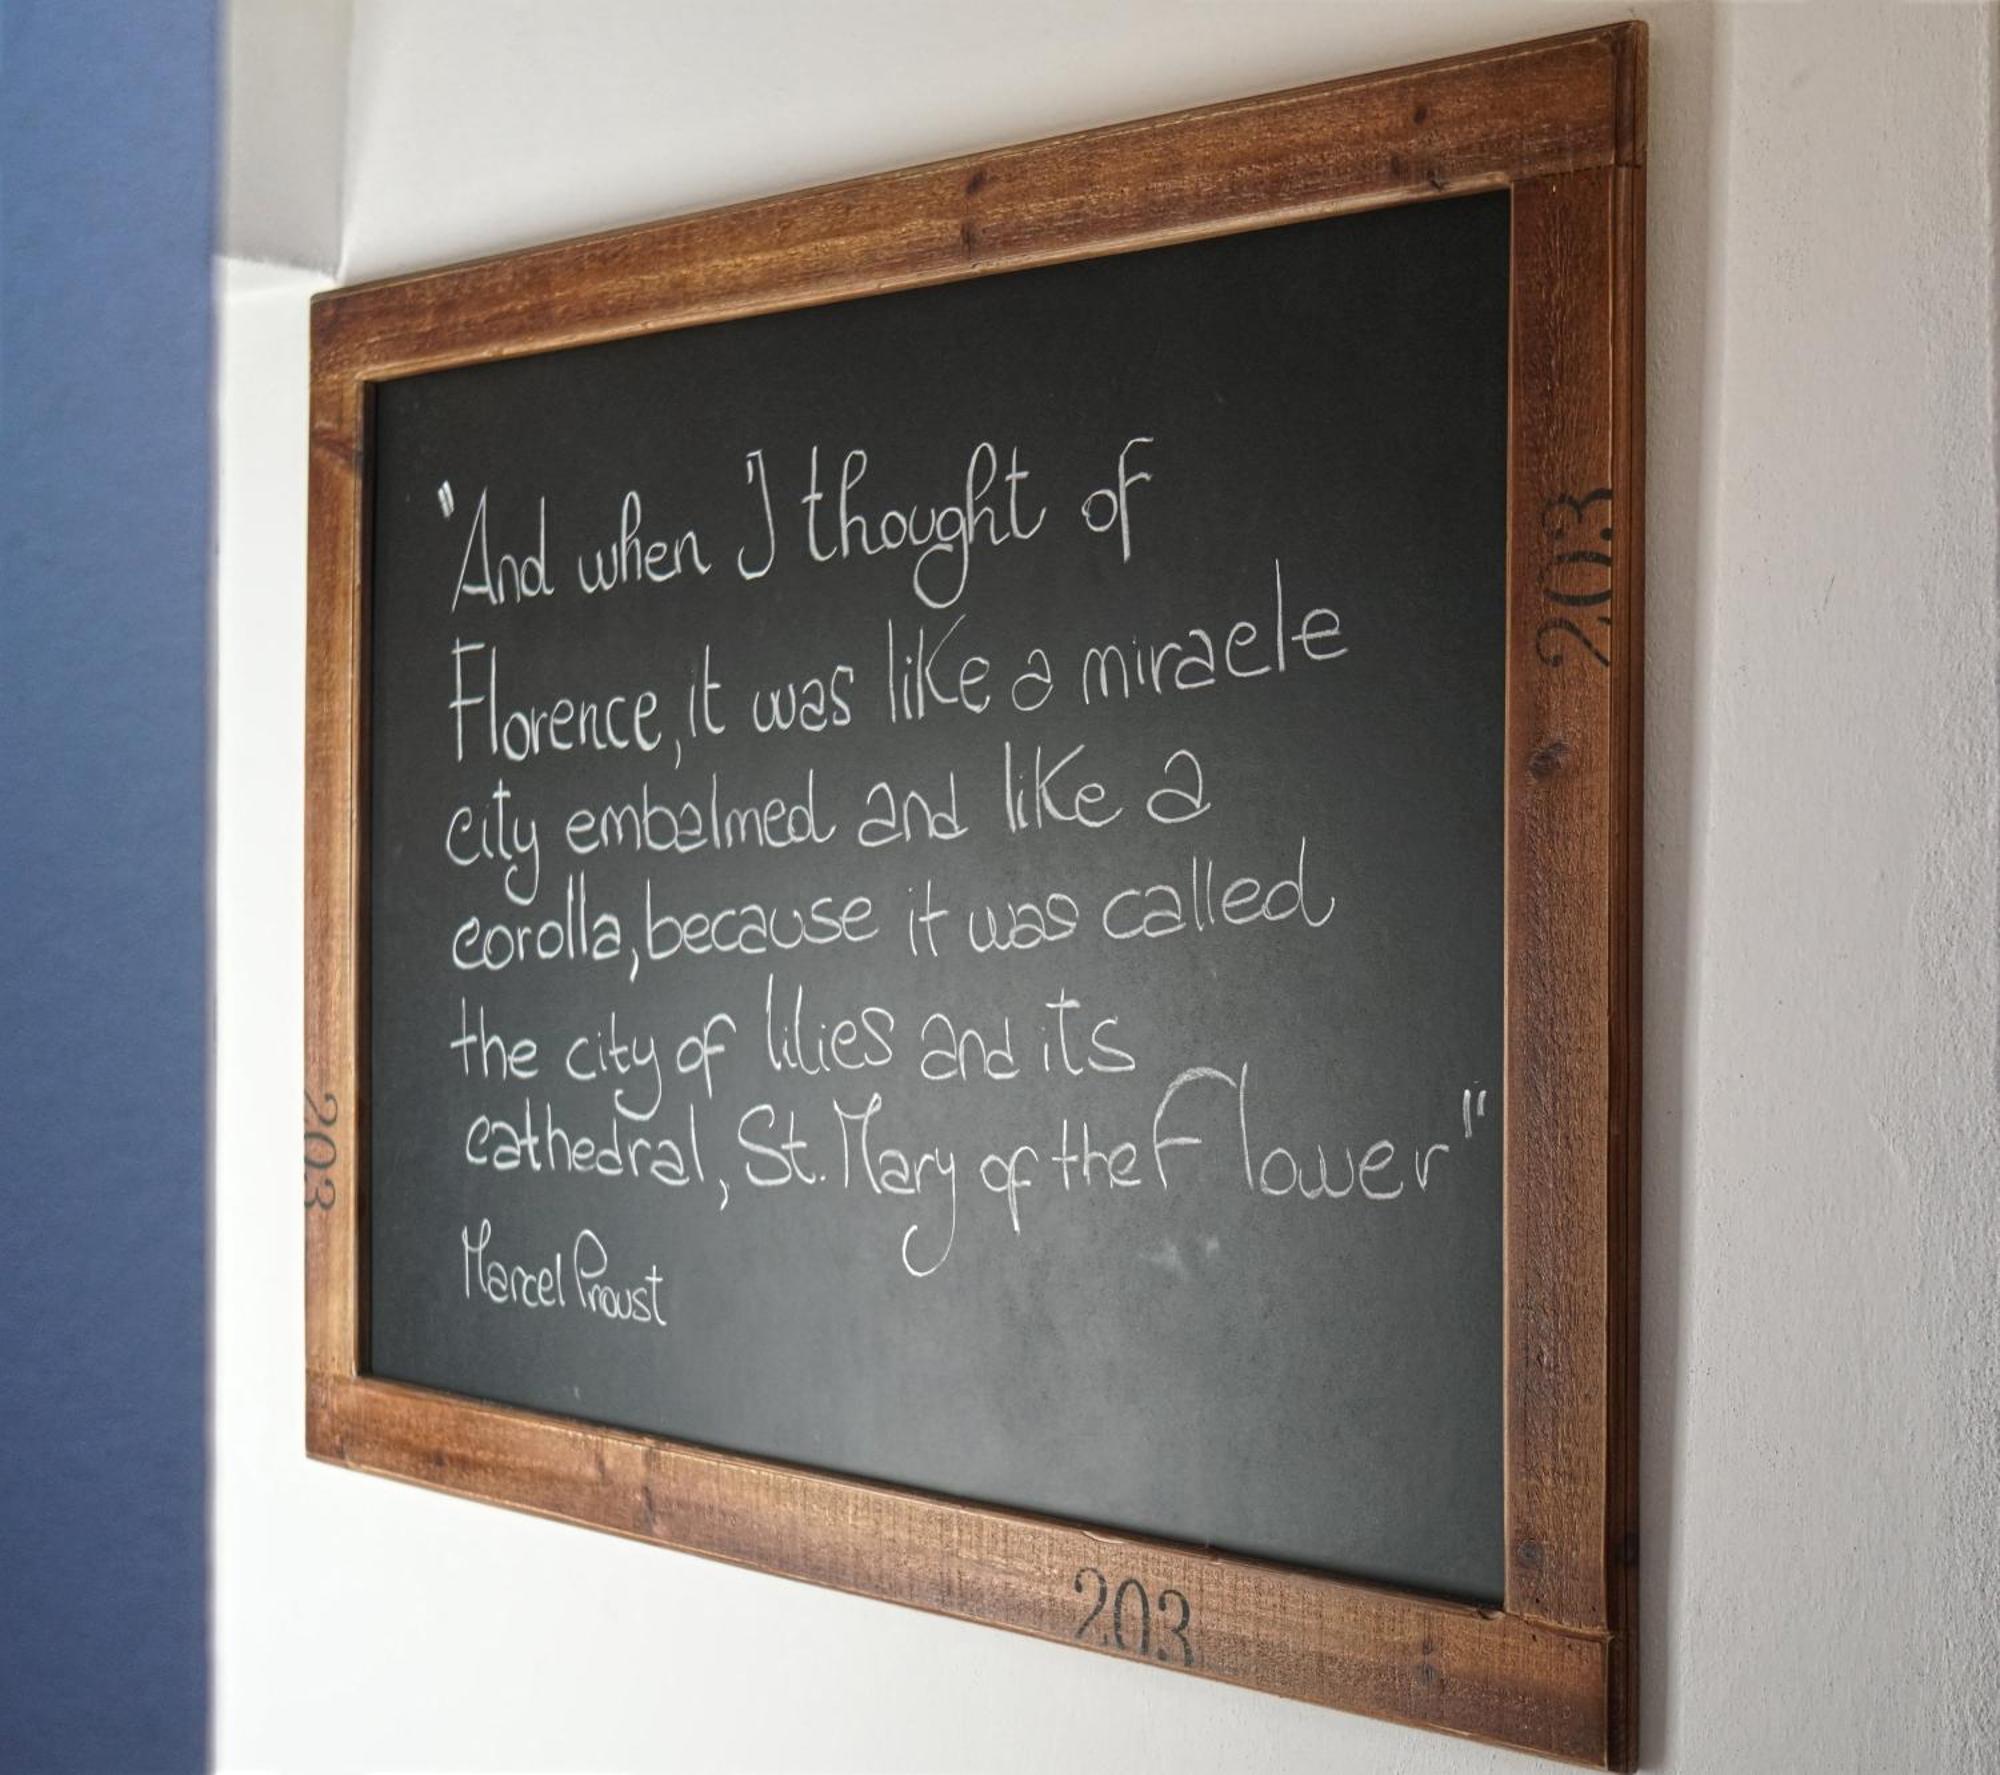 "And when I thought of
Florence, it was like a miracle
city embalmed and like a
corolla, because it was called
the city of lilies and its
cathedral, St. Mary of the Flower"
Marcel Proust
203
203
203